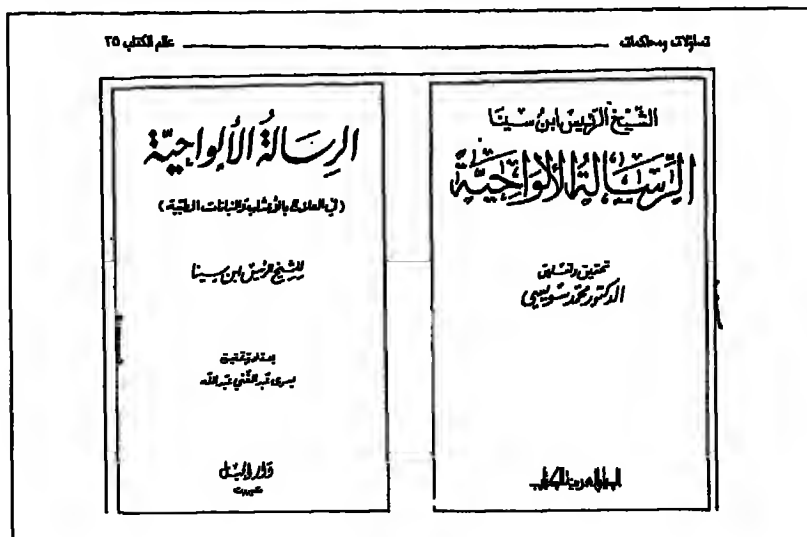 تساؤلات ومحاكمات
عالم الكتاب ٢٥
الشيخ الرئيس ابن سينا
الرسالة الألواحية
تحقيق وتعليق
الدكتور محمد سويسي
الدار العربية للكتاب
الرِسَالةُ الألواحيّة
(في العلاج بالأعشاب والنباتات الطبية)
للشيخ الرئيس ابن سينا
يسرى عبد الغني عبد الله
دار الجيل
بيروت